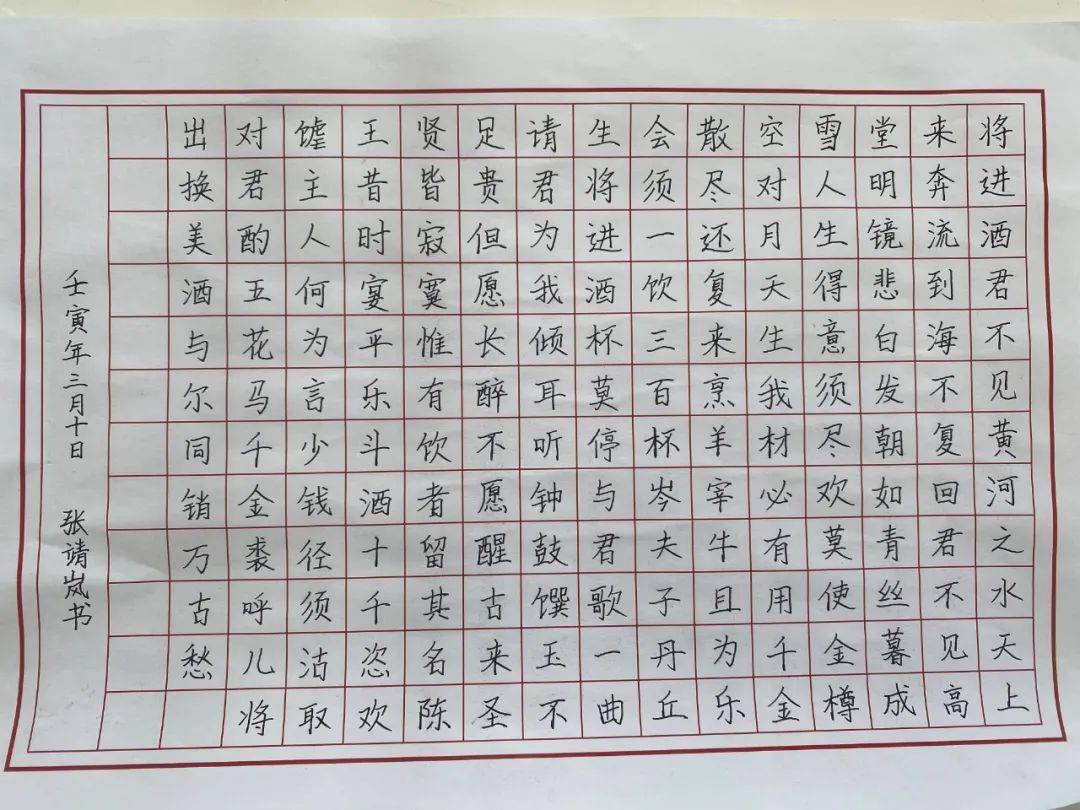 将进酒君不见黄河之水天上
来奔流到海不复回君不见高
堂明镜悲白发朝如青丝暮成
雪人生得意须尽欢莫使金樽
空对月天生我材必有用千金
散尽还复来烹羊宰牛且为乐
会须一饮三百杯岑夫子丹丘
生将进酒杯莫停与君歌一曲
请君为我倾耳听钟鼓馔玉不
足贵但愿长醉不愿醒古来圣
贤皆寂寞惟有饮者留其名陈
王昔时宴平乐斗酒十千恣欢
谑主人何为言少钱径须沽取
对君酌五花马千金裘呼儿将
出换美酒与尔同销万古愁
壬寅年三月十日 张靖岚书